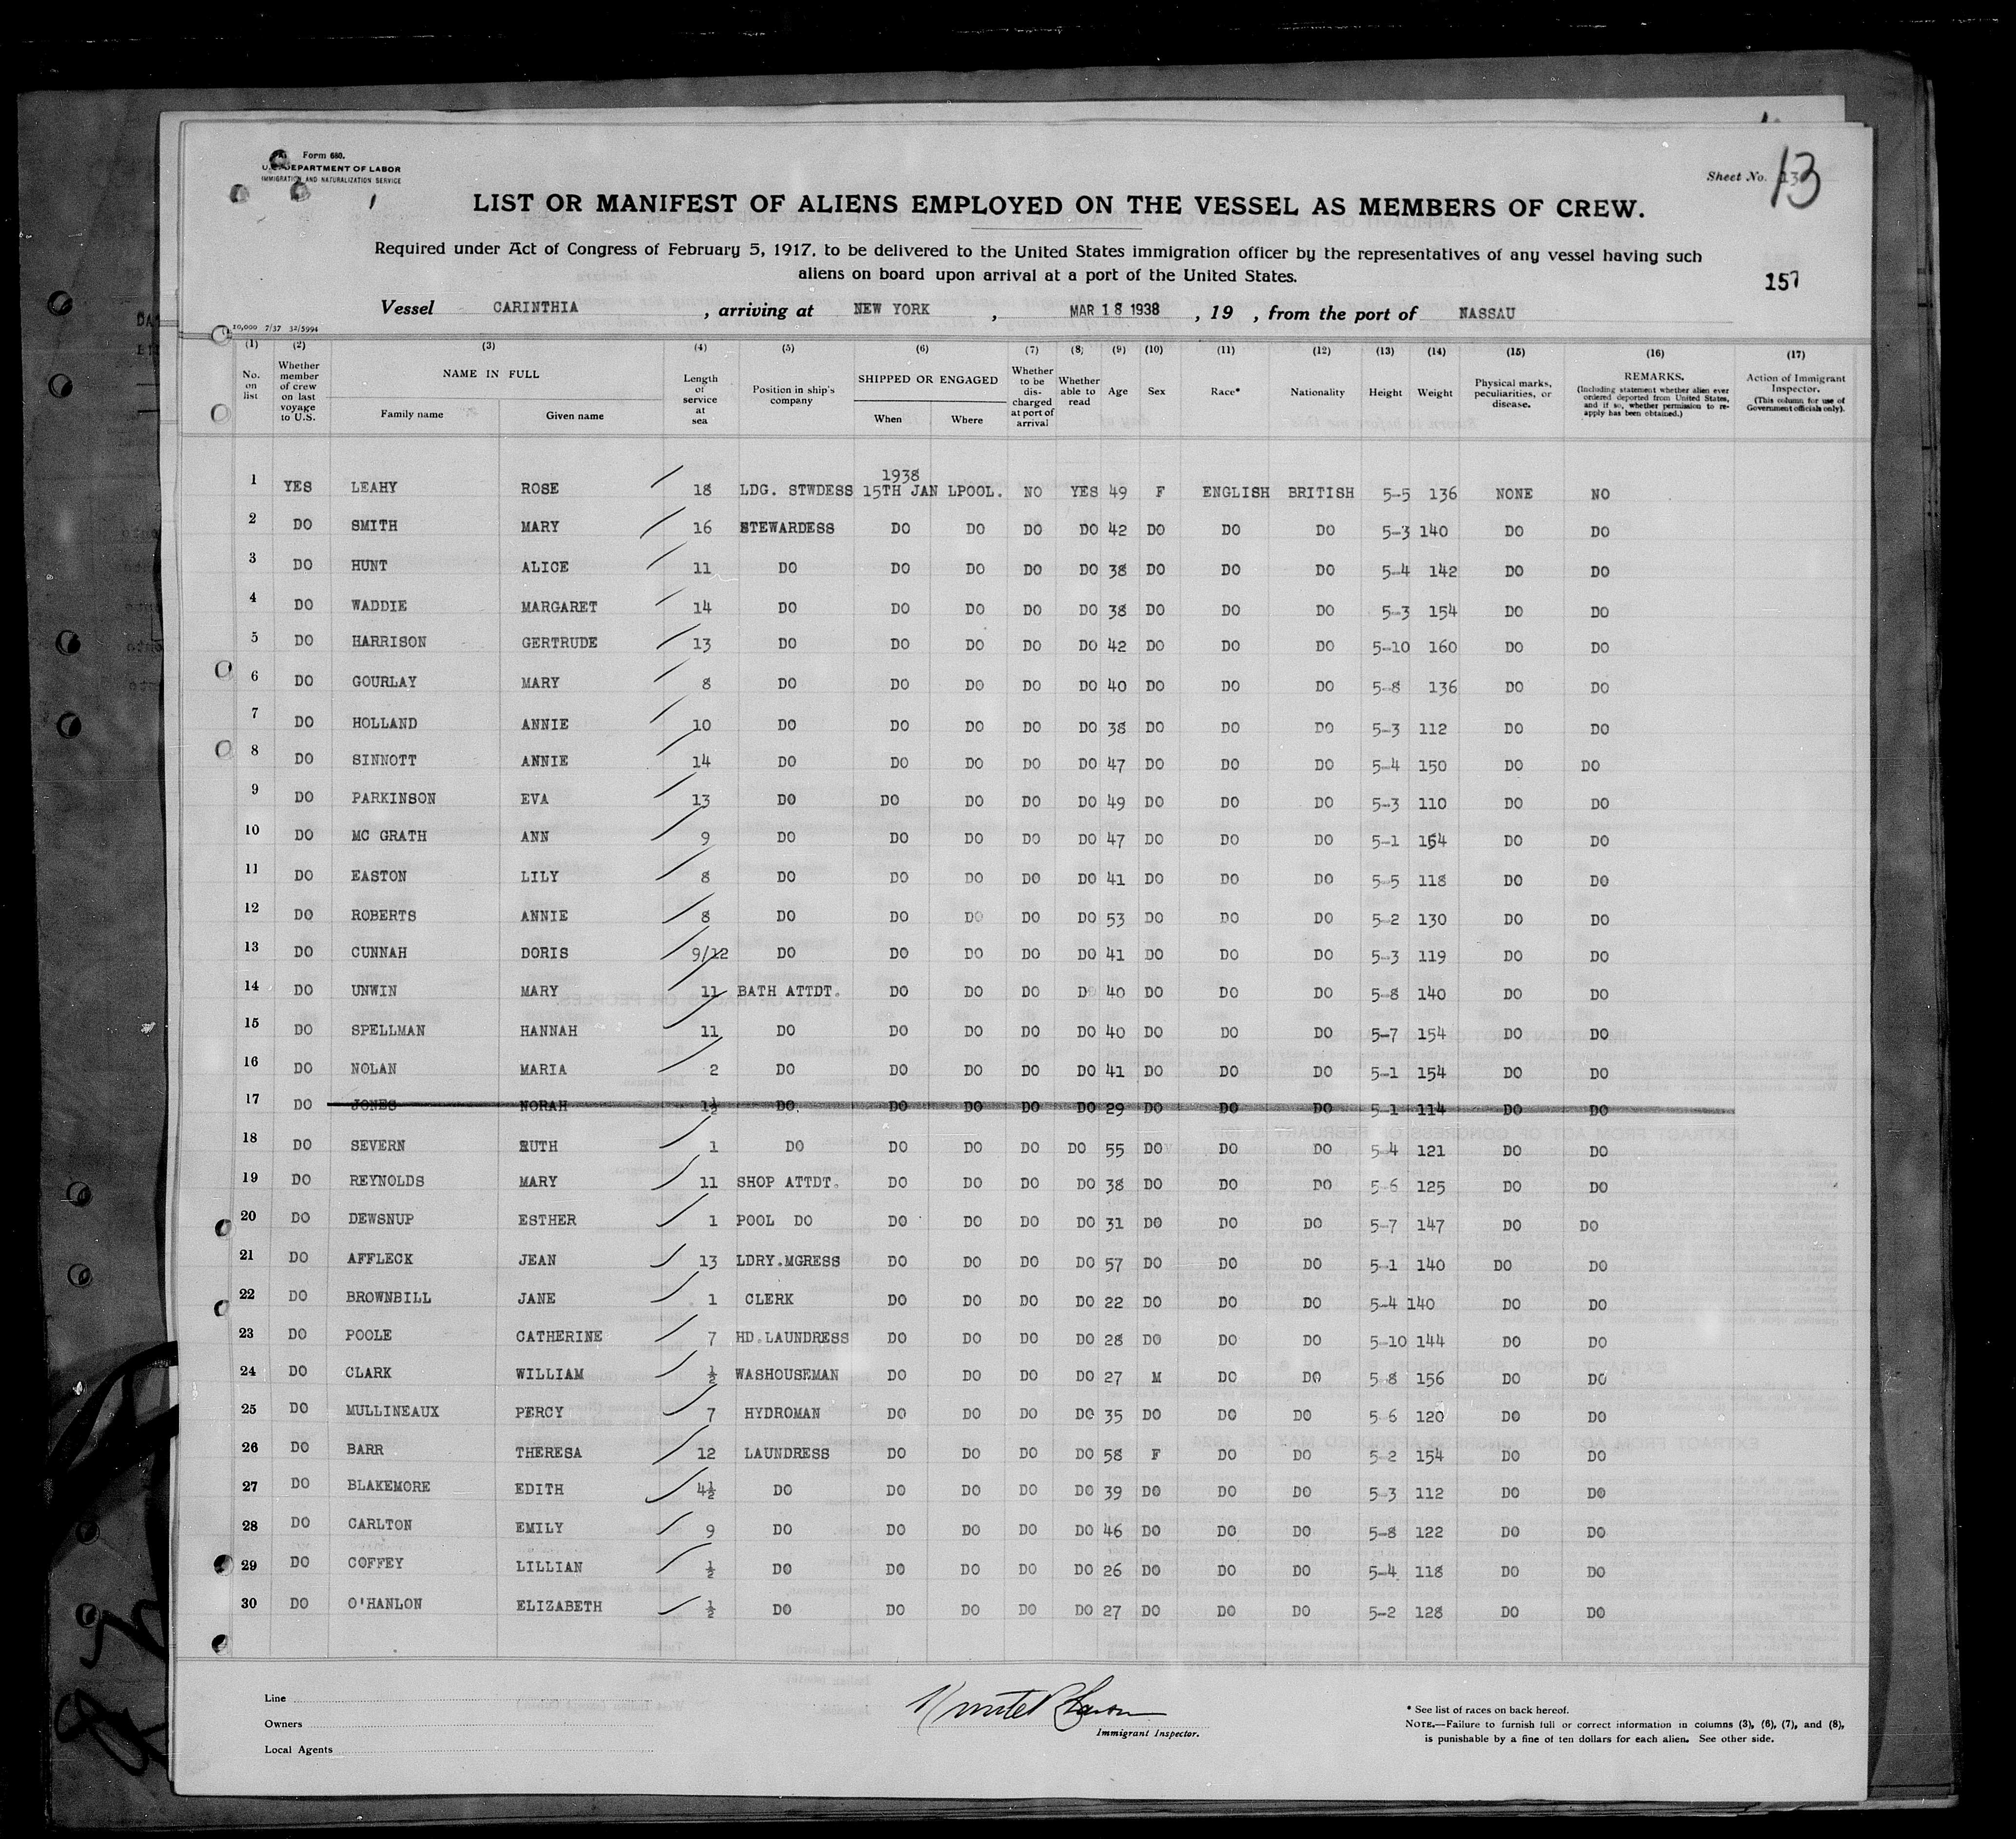 Form 680.
U.S. DEPARTMENT OF LABOR
IMMIGRATION AND NATURALIZATION SERVICE
Sheet No. 13
13
LIST OR MANIFEST OF ALIENS EMPLOYED ON THE VESSEL AS MEMBERS OF CREW.
Required under Act of Congress of February 5, 1917, to be delivered to the United States immigration officer by the representatives of any vessel having such
aliens on board upon arrival at a port of the United States.
157
Vessel CARINTHIA , arriving at NEW YORK , MAR 18 1938 , 19 , from the port of NASSAU
10,000 7/37 32/5994
(1) (2) (3) (4) (5) (6) (7) (8) (9) (10) (11) (12) (13) (14) (15) (16) (17)
No. on list | Whether member of crew on last voyage to U.S. | NAME IN FULL Family name Given name | Length of service at sea | Position in ship's company | SHIPPED OR ENGAGED When Where | Whether to be discharged at port of arrival | Whether able to read | Age | Sex | Race* | Nationality | Height | Weight | Physical marks, peculiarities, or disease. | REMARKS. (Including statement whether alien ever ordered deported from United States, and if so, whether permission to reapply has been obtained.) | Action of Immigrant Inspector. (This column for use of Government officials only).
1938
1 YES LEAHY ROSE 18 LDG. STWDESS 15TH JAN LPOOL. NO YES 49 F ENGLISH BRITISH 5-5 136 NONE NO
2 DO SMITH MARY 16 STEWARDESS DO DO DO DO 42 DO DO DO 5-3 140 DO DO
3 DO HUNT ALICE 11 DO DO DO DO DO 38 DO DO DO 5-4 142 DO DO
4 DO WADDIE MARGARET 14 DO DO DO DO DO 38 DO DO DO 5-3 154 DO DO
5 DO HARRISON GERTRUDE 13 DO DO DO DO DO 42 DO DO DO 5-10 160 DO DO
6 DO GOURLAY MARY 8 DO DO DO DO DO 40 DO DO DO 5-8 136 DO DO
7 DO HOLLAND ANNIE 10 DO DO DO DO DO 38 DO DO DO 5-3 112 DO DO
8 DO SINNOTT ANNIE 14 DO DO DO DO DO 47 DO DO DO 5-4 150 DO DO
9 DO PARKINSON EVA 13 DO DO DO DO DO 49 DO DO DO 5-3 110 DO DO
10 DO MC GRATH ANN 9 DO DO DO DO DO 47 DO DO DO 5-1 154 DO DO
11 DO EASTON LILY 8 DO DO DO DO DO 41 DO DO DO 5-5 118 DO DO
12 DO ROBERTS ANNIE 8 DO DO DO DO DO 53 DO DO DO 5-2 130 DO DO
13 DO CUNNAH DORIS 9/12 DO DO DO DO DO 41 DO DO DO 5-3 119 DO DO
14 DO UNWIN MARY 11 BATH ATTDT. DO DO DO DO 40 DO DO DO 5-8 140 DO DO
15 DO SPELLMAN HANNAH 11 DO DO DO DO DO 40 DO DO DO 5-7 154 DO DO
16 DO NOLAN MARIA 2 DO DO DO DO DO 41 DO DO DO 5-1 154 DO DO
17 DO JONES NORAH 1½ DO DO DO DO DO 29 DO DO DO 5-1 114 DO DO
18 DO SEVERN RUTH 1 DO DO DO DO DO 55 DO DO DO 5-4 121 DO DO
19 DO REYNOLDS MARY 11 SHOP ATTDT. DO DO DO DO 38 DO DO DO 5-6 125 DO DO
20 DO DEWSNUP ESTHER 1 POOL DO DO DO DO DO 31 DO DO DO 5-7 147 DO DO
21 DO AFFLECK JEAN 13 LDRY.MGRESS DO DO DO DO 57 DO DO DO 5-1 140 DO DO
22 DO BROWNBILL JANE 1 CLERK DO DO DO DO 22 DO DO DO 5-4 140 DO DO
23 DO POOLE CATHERINE 7 HD.LAUNDRESS DO DO DO DO 28 DO DO DO 5-10 144 DO DO
24 DO CLARK WILLIAM ½ WASHOUSEMAN DO DO DO DO 27 M DO DO 5-8 156 DO DO
25 DO MULLINEAUX PERCY 7 HYDROMAN DO DO DO DO 35 DO DO DO 5-6 120 DO DO
26 DO BARR THERESA 12 LAUNDRESS DO DO DO DO 58 F DO DO 5-2 154 DO DO
27 DO BLAKEMORE EDITH 4½ DO DO DO DO DO 39 DO DO DO 5-3 112 DO DO
28 DO CARLTON EMILY 9 DO DO DO DO DO 46 DO DO DO 5-8 122 DO DO
29 DO COFFEY LILLIAN ½ DO DO DO DO DO 26 DO DO DO 5-4 118 DO DO
30 DO O'HANLON ELIZABETH ½ DO DO DO DO DO 27 DO DO DO 5-2 128 DO DO
Line
Owners
Local Agents
Immigrant Inspector.
* See list of races on back hereof.
NOTE.—Failure to furnish full or correct information in columns (3), (6), (7), and (8),
is punishable by a fine of ten dollars for each alien. See other side.